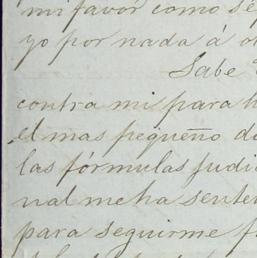 mi favor como se p
yo por nada á o
Sabe
contra mi para h
el mas pequeño de
las formulas judi
nal me ha senten
para seguirme f